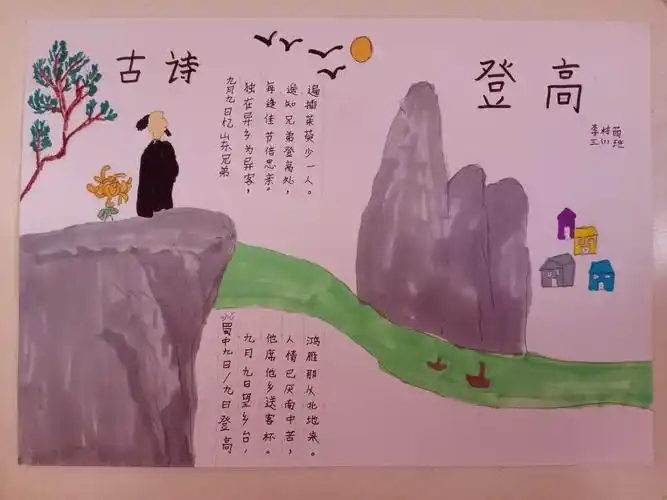 古诗
登高
九月九日忆山东兄弟
独在异乡为异客，
每逢佳节倍思亲。
遥知兄弟登高处，
遍插茱萸少一人。
蜀中九日/九日登高
九月九日望乡台，
他席他乡送客杯。
人情已厌南中苦，
鸿雁那从北地来。